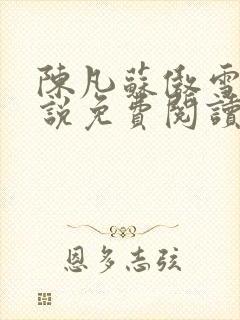 陳凡蘇傲雪
說免費閱讀
恩多志弦